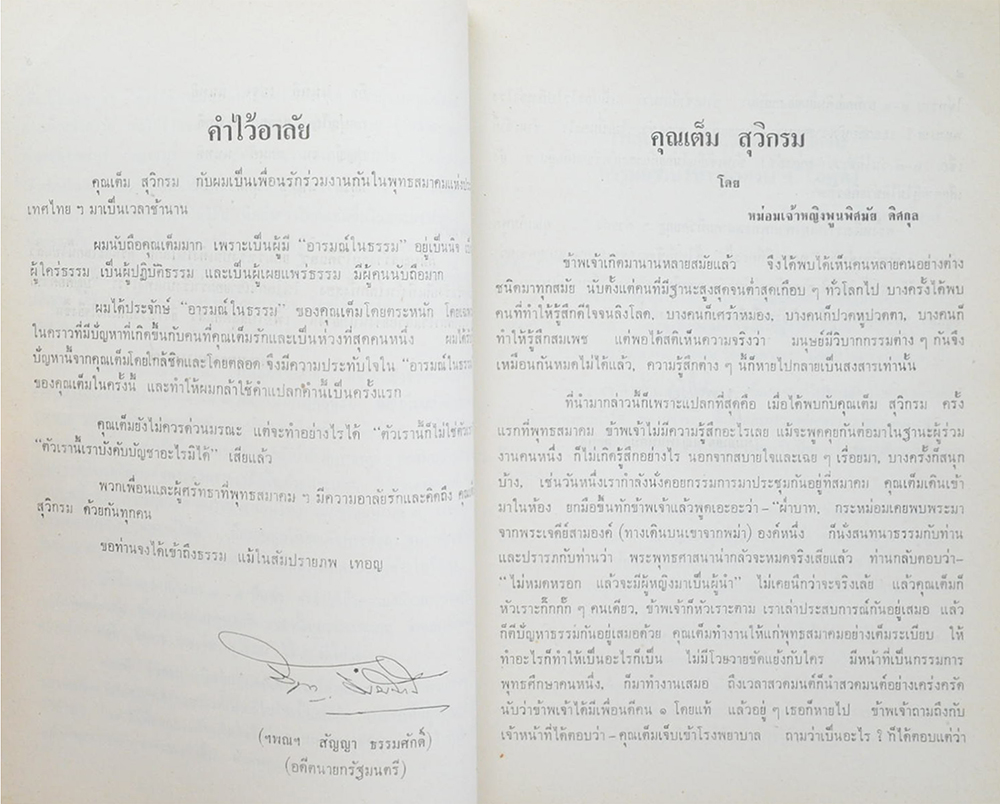 คำไว้อาลัย
คุณเต็ม สุวิกรม กับผมเป็นเพื่อนรักร่วมงานกันในพุทธสมาคมแห่งประ
เทศไทย ฯ มาเป็นเวลาช้านาน
ผมนับถือคุณเต็มมาก เพราะเป็นผู้มี “อารมณ์ในธรรม” อยู่เป็นนิจ
ผู้ใคร่ธรรม เป็นผู้ปฏิบัติธรรม และเป็นผู้เผยแพร่ธรรม มีผู้คนนับถือมาก
ผมได้ประจักษ์ “อารมณ์ในธรรม” ของคุณเต็มโดยตระหนัก
ในคราวที่มีปัญหาที่เกิดขึ้นกับคนที่คุณเต็มรักและเป็นห่วงที่สุดคนหนึ่ง ผมได้
ปัญหานี้จากคุณเต็มโดยใกล้ชิดและโดยตลอด จึงมีความประทับใจใน “อารมณ์ในธรรม
ของคุณเต็มในครั้งนี้ และทำให้ผมกล้าใช้คำแปลกคำนี้เป็นครั้งแรก
คุณเต็มยังไม่ควรด่วนมรณะ แต่จะทำอย่างไรได้ “ตัวเรานี้ก็ไม่ใช่ตัว
“ตัวเรานี้เราบังคับบัญชาอะไรมิได้” เสียแล้ว
พวกเพื่อนและผู้ศรัทธาที่พุทธสมาคม ฯ มีความอาลัยรักและคิดถึง
สุวิกรม ด้วยกันทุกคน
ขอท่านจงได้เข้าถึงธรรม แม้ในสัมปรายภพ เทอญ
(ฯพณฯ สัญญา ธรรมศักดิ์)
(อดีตนายกรัฐมนตรี)
คุณเต็ม สุวิกรม
โดย
หม่อมเจ้าหญิงพูนพิศมัย ดิศกุล
ข้าพเจ้าเกิดมานานหลายสมัยแล้ว จึงได้พบได้เห็นคนหลายคนอย่างต่าง
ชนิดมาทุกสมัย นับตั้งแต่คนที่มีฐานะสูงสุดจนต่ำสุดเกือบ ๆ ทั่วโลกไป บางครั้งได้พบ
คนที่ทำให้รู้สึกดีใจจนลิงโลด, บางคนก็เศร้าหมอง, บางคนก็ปวดหูปวดตา, บางคนก็
ทำให้รู้สึกสมเพช แต่พอได้สติเห็นความจริงว่า มนุษย์มีวิบากกรรมต่าง ๆ กันจึง
เหมือนกันหมดไม่ได้แล้ว, ความรู้สึกต่าง ๆ นี้ก็หายไปกลายเป็นสงสารเท่านั้น
ที่นำมากล่าวนี้ก็เพราะแปลกที่สุดคือ เมื่อได้พบกับคุณเต็ม สุวิกรม ครั้ง
แรกที่พุทธสมาคม ข้าพเจ้าไม่มีความรู้สึกอะไรเลย แม้จะพูดคุยกันต่อมาในฐานะผู้ร่วม
งานคนหนึ่ง ก็ไม่เกิดรู้สึกอย่างไร นอกจากสบายใจและเฉย ๆ เรื่อยมา, บางครั้งก็สนุก
บ้าง, เช่นวันหนึ่งเรากำลังนั่งคอยกรรมการมาประชุมกันอยู่ที่สมาคม คุณเต็มเดินเข้า
มาในห้อง ยกมือขึ้นทักข้าพเจ้าแล้วพูดเอะอะว่า-“ฝ่าบาท, กระหม่อมเคยพบพระมา
จากพระเจดีย์สามองค์ (ทางเดินบนเขาจากพม่า) องค์หนึ่ง ก็นั่งสนทนาธรรมกับท่าน
และปรารภกับท่านว่า พระพุทธศาสนาน่ากลัวจะหมดจริงเสียแล้ว ท่านกลับตอบว่า-
“ไม่หมดหรอก แล้วจะมีผู้หญิงมาเป็นผู้นำ” ไม่เคยนึกว่าจะจริงเลย แล้วคุณเต็มก็
หัวเราะกั๊กกั๊ก ๆ คนเดียว, ข้าพเจ้าก็หัวเราะตาม เราเล่าประสบการณ์กันอยู่เสมอ แล้ว
ก็ตีปัญหาธรรมกันอยู่เสมอด้วย คุณเต็มทำงานให้แก่พุทธสมาคมอย่างเต็มระเบียบ ให้
ทำอะไรก็ทำให้เป็นอะไรก็เป็น ไม่มีโวยวายขัดแย้งกับใคร มีหน้าที่เป็นกรรมการ
พุทธศึกษาคนหนึ่ง, ก็มาทำงานเสมอ ถึงเวลาสวดมนต์ก็นำสวดมนต์อย่างเคร่งครัด
นับว่าข้าพเจ้าได้มีเพื่อนดีคน ๑ โดยแท้ แล้วอยู่ ๆ เธอก็หายไป ข้าพเจ้าถามถึงกับ
เจ้าหน้าที่ได้ตอบว่า-คุณเต็มเจ็บเข้าโรงพยาบาล ถามว่าเป็นอะไร ? ก็ได้ตอบแต่ว่า